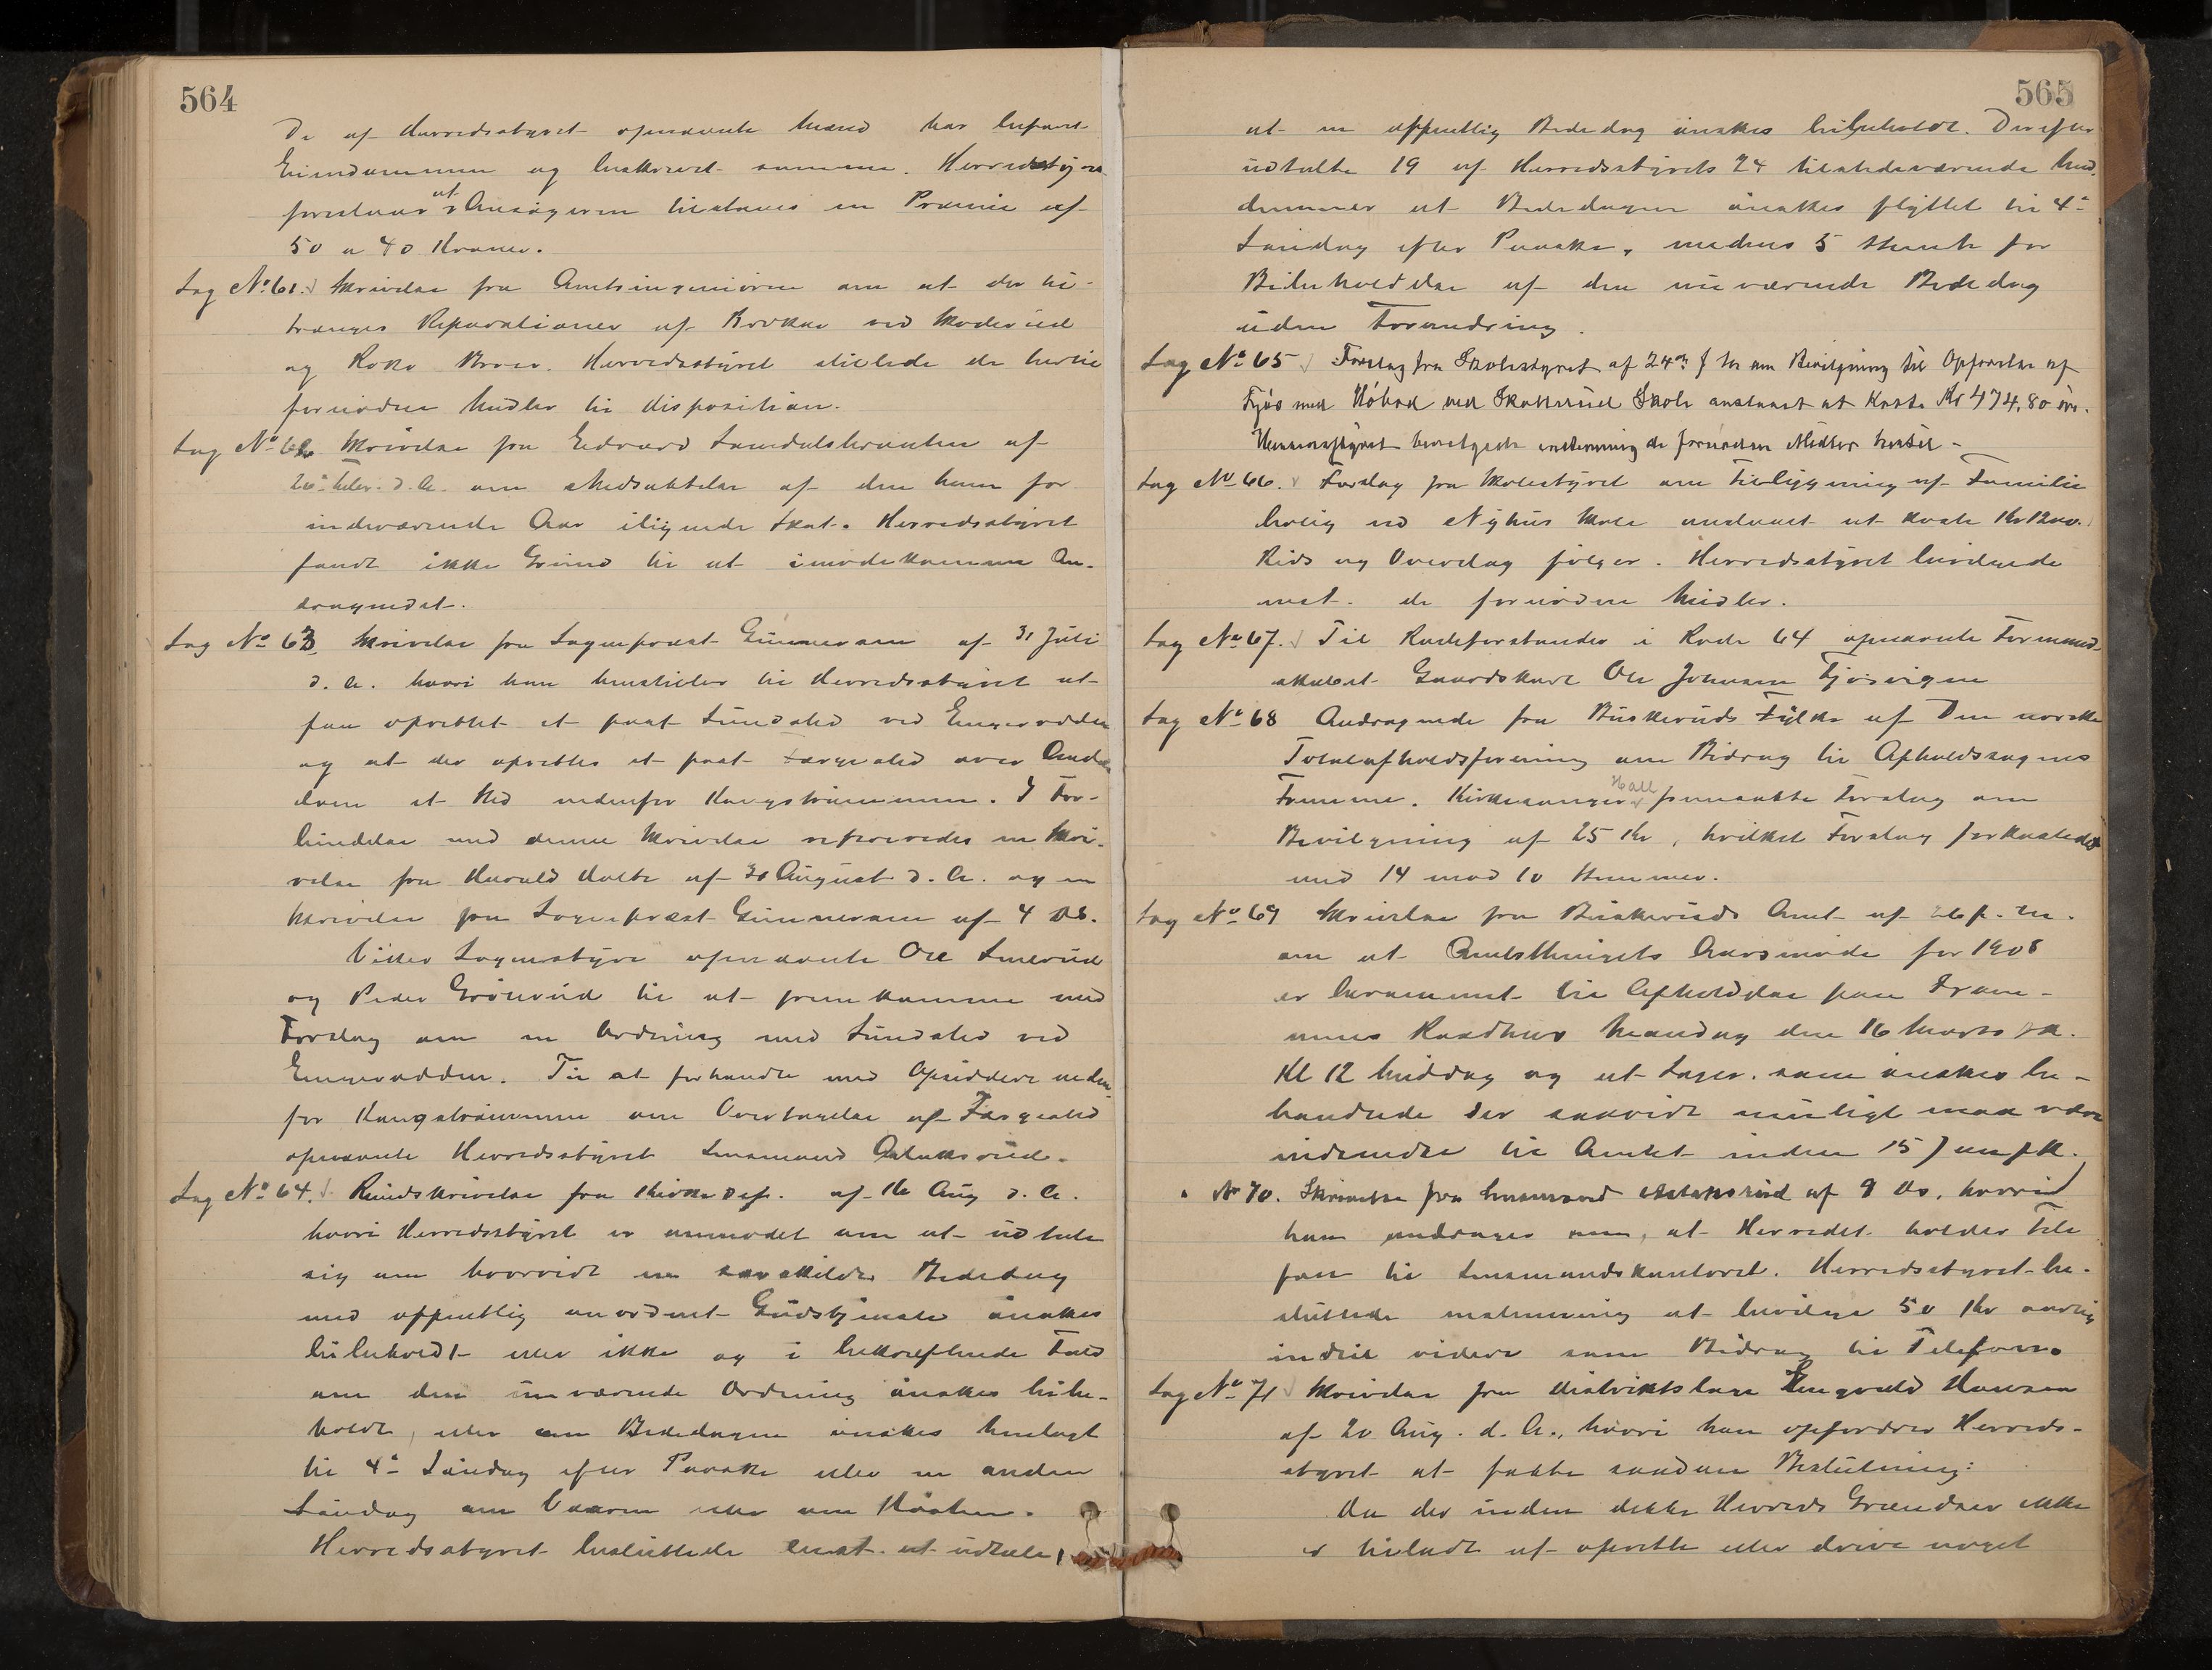 564
De af Herredsstyret opnævnte Mænd har befaret
Eiendommen og beskrevet samme. Herredsstyret
foreslaar at Ansøgeren tilstaaes en Præmie af
50 a 40 Kroner.
Sag No 61. Skrivelse fra Amtsingeniøren om at der til-
trænges Reparationer af Brokar ved Skoderud
og Roko Broer. Herredsstyret stillede de hertil
fornødne Midler til disposition.
Sag No 62 Skrivelse fra Edvard Samdalsbraaten af
d. A. om Nedsættelse af den ham for
indeværende Aar ilignede Skat. Herredsstyret
fandt ikke Grund til at imødekomme An-
dragendet.
Sag No 63 Skrivelse fra Sognepræst Gunnersen af 31 Juli
d. A. hvori han henstiller til Herredsstyret at
faa oprettet et fast Sundsted ved Engerodden
og at der oprettes et fast Færgested over
elven et Sted nedenfor Kongstrømmen. I For-
bindelse med denne Skrivelse refereredes en Skri-
velse fra Harald Holte af 30 August d. A. og en
Skrivelse fra Sognepræst Gunnersen af 4 ds.
Villes Sognestyre opnævnte Ole Smerud
og Peder Grønerud til at fremkomme med
Forslag om en Ordning med Sundsted ved
Engerodden. Til at forhandle med Opsiddere neden-
for Kongstrømmen om Overtagelse af Færgested
opnævnte Herredsstyret Lensmand Aslaksrud.
Sag No 64. Rundskrivelse fra Kirkedep. af 16 Aug d. A.
hvori Herredsstyret er anmodet om at udtale
sig om hvorvidt en særskilde Bededag
med offentlig anordnet Gudstjeneste ønskes
bibeholdt eller ikke og i bekræftende Fald
om den nuværende Ordning ønskes bibe-
holdt, eller om Bededagen ønskes henlagt
til 4de Søndag efter Paaske eller en anden
Søndag om Vaaren eller om Høsten.
Herredsstyret besluttede enst. at udtale,
565
at en offentlig Bededag ønskes bibeholdt. Derefter
udtalte 19 af Herredsstyrets 24 tilstedeværende Med-
lemmer at Bededagen ønskes flyttet til 4de
Søndag efter Paaske, medens 5 stemte for
Bibeholdelse af den nuværende Bededag
uden Forandring.
Sag No 65 Forslag fra Skolestyret af 24de f. M. om Bevilgning til Opførelse af
Fjøs med Høbod ved Skotserud Skole anslaaet at koste Kr 474,80 øre.
Herredsstyret bevilgede enstemmig de fornødne Midler hertil -
Sag No 66. Forslag fra Skolestyret om Tilbygning af Familie
bolig ved Nyhus Skole anslaaet at koste Kr 1200.
Rids og Overslag følger. Herredsstyret bevilgede
enst. de fornødne Midler.
Sag No 67. Til Rodeforstander i Rode 64 opnævnte Formand-
skabet Gaardskarl Ole Johnsen Fjøsvigen
Sag No 68 Andragende fra Buskeruds Fylke af Den norske
Totalafholdsforening om Bidrag til Afholdssagens
Fremme. Kirkesanger Hall fremsatte Forslag om
Bevilgning af 25 Kr, hvilket Forslag forkastedes
med 14 mod 10 Stemmer.
Sag No 69 Skrivelse fra Buskeruds Amt af 26 f. m.
om at Amtsthingets Aarsmøde for 1908
er berammet til Afholdelse paa Dram-
mens Raadhus Mandag den 16 Marts fk.
Kl 12 Middag og at Sager som ønskes be-
handlede der saavidt muligt maa være
indsendte til Amtet inden 15 Jan fk.
" No 70. Skrivelse fra Lensmand Aslaksrud af 9 ds. hvorved
han andrager om, at Herredet holder Tele
fon til Lensmandskontoret. Herredsstyret be-
sluttede enstemmig at bevilge 50 Kr aarlig
indtil videre som Bidrag til Telefon.
Sag No 71 Skrivelse fra Distriktslæge Hansen
af 20 Aug. d. A., hvori han opfordrer Herreds-
styret at fatte saadan Beslutning:
Da der inden dette Herreds Grændser ikke
er tilladt at oprette eller drive noget